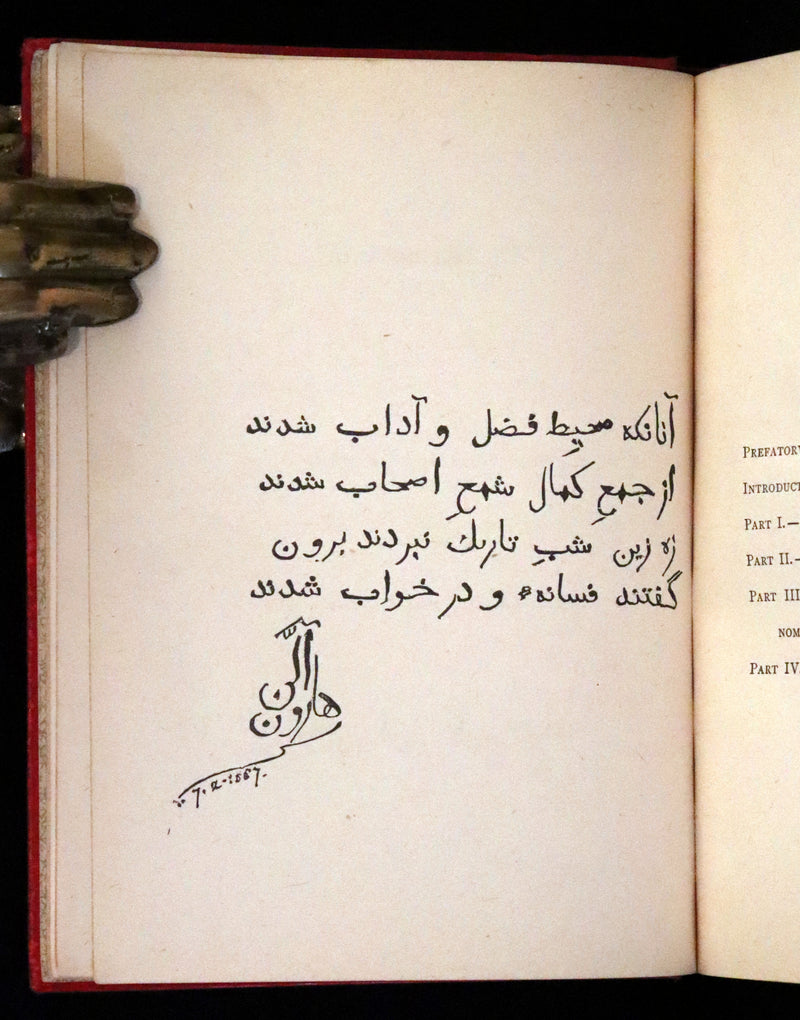 آنانکه محیطِ فضل و آداب شدند
از جمعِ کمال شمعِ اصحاب شدند
ره زین شبِ تاریك نبردند برون
گفتند فسانهٔ و در خواب شدند
آلن
هارون
7. 2. 1887.
PREFATORY
INTRODUCT
PART I.—
PART II.—
PART III
NOM
PART IV.